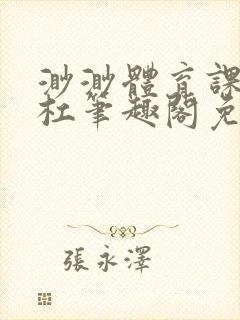 渺渺體育課
杜筆趣閣免
張永澤